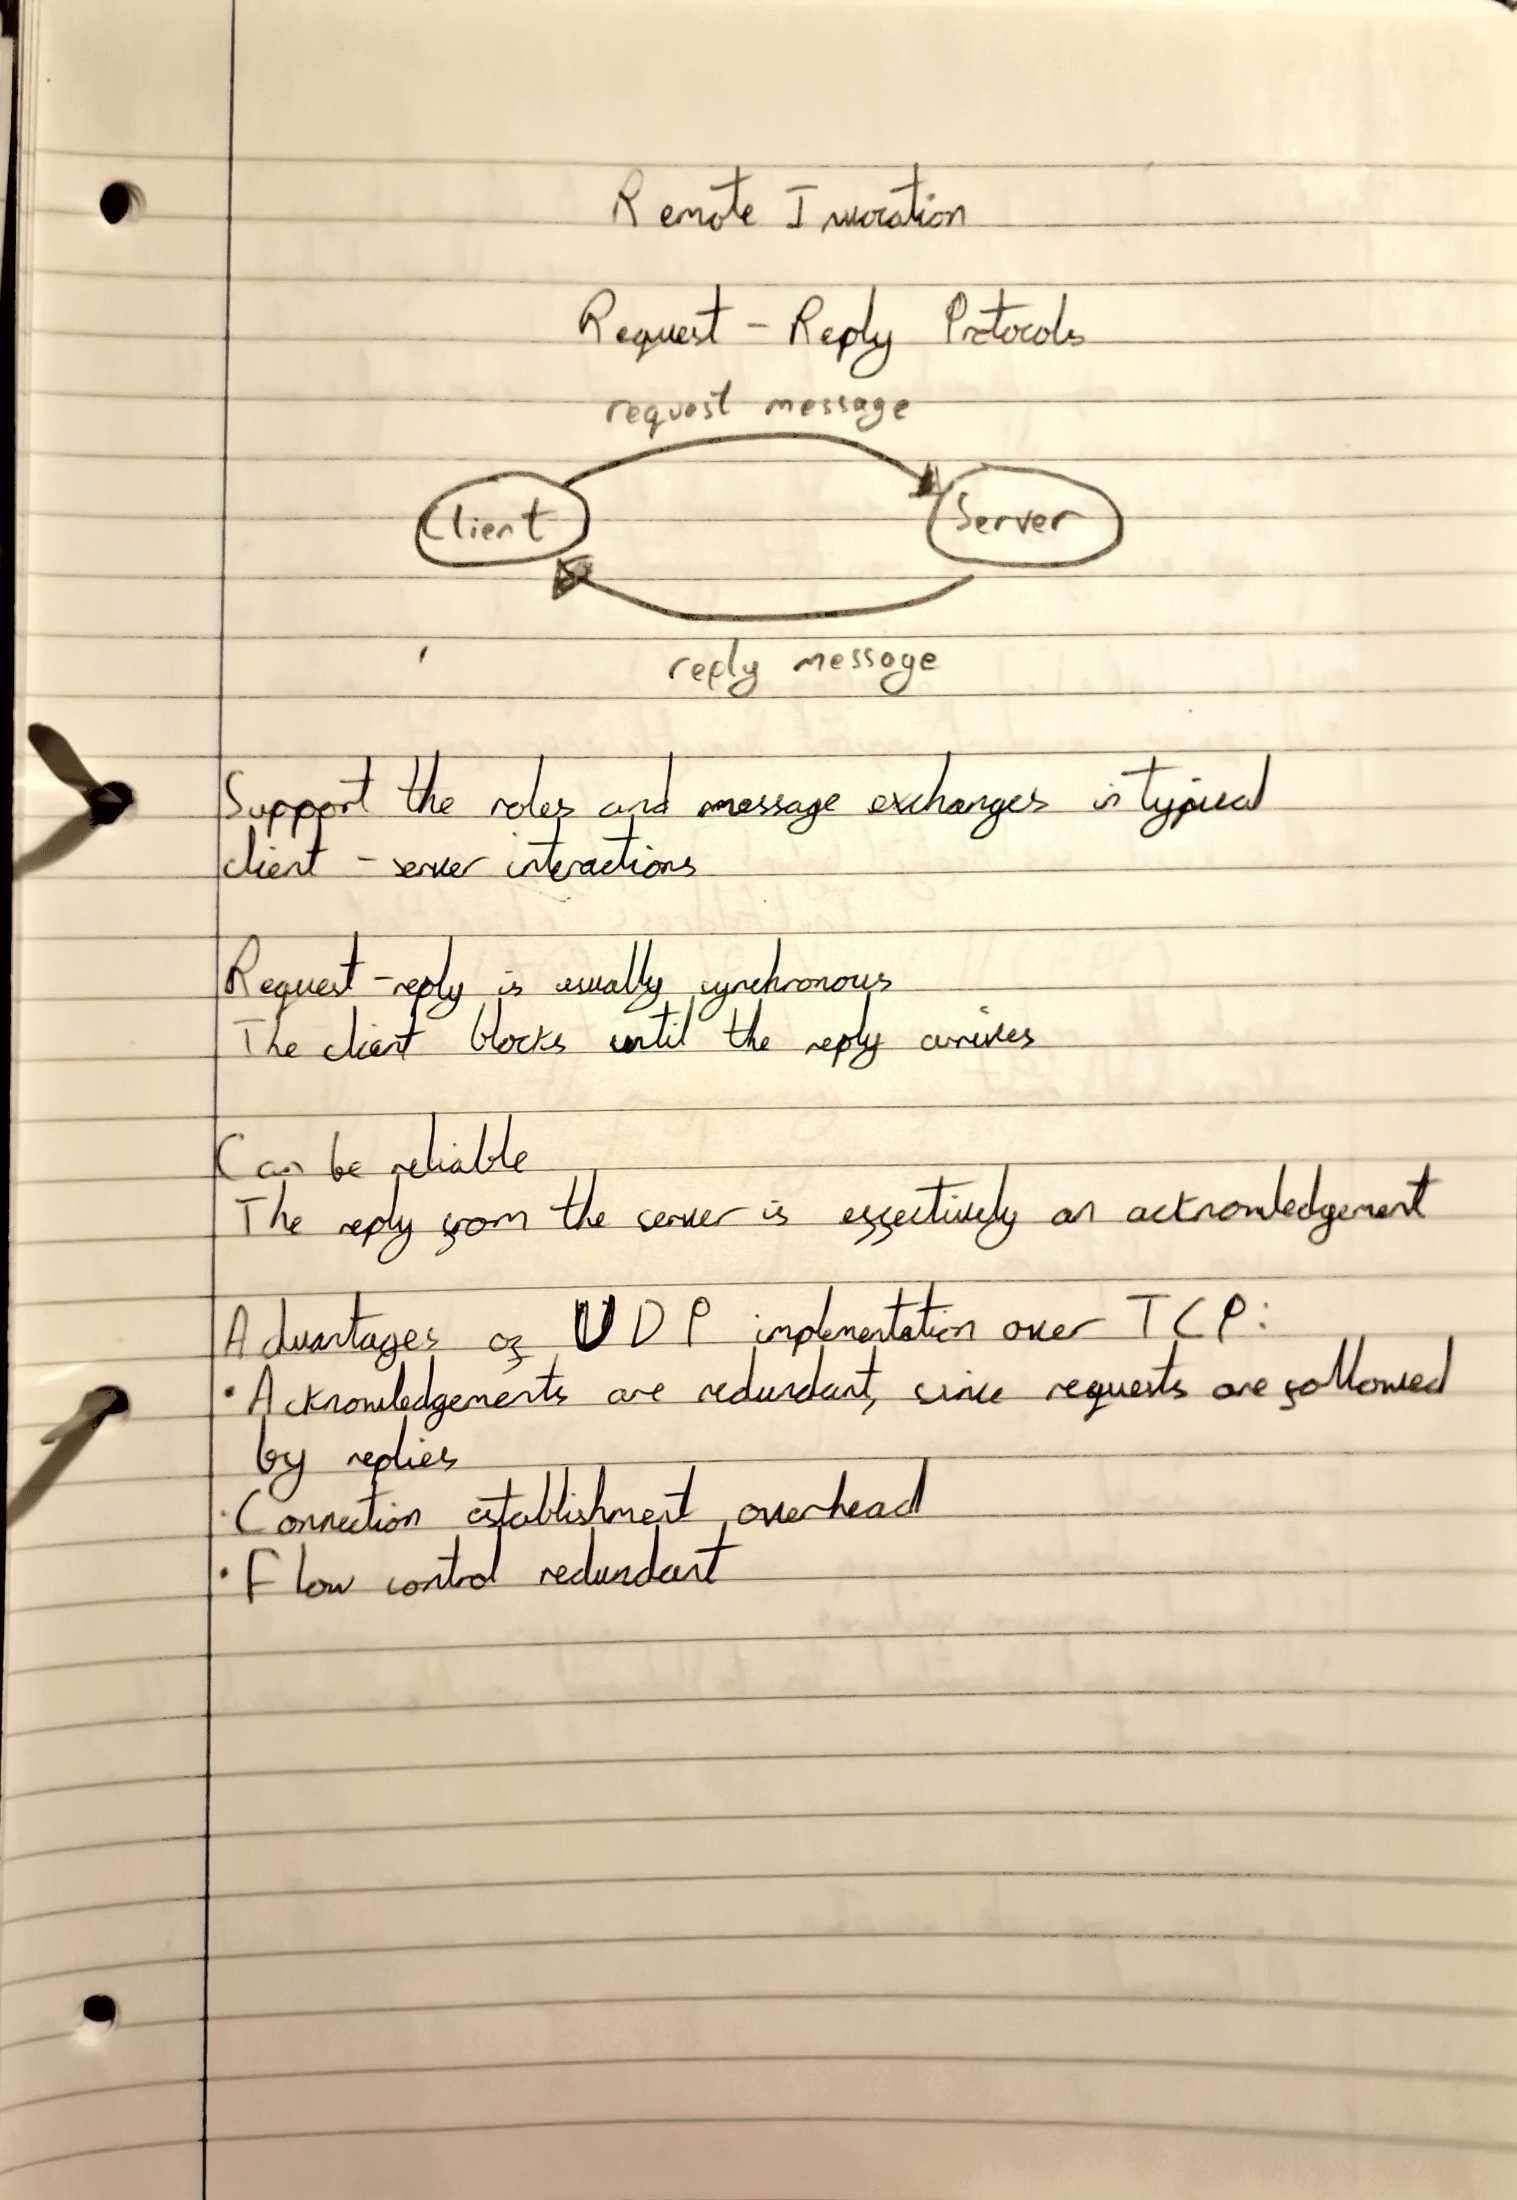 Remote Invocation
Request - Reply Protocols
request message
Client
Server
reply message
Support the roles and message exchanges in typical
client - server interactions
Request-reply is usually synchronous
The client blocks until the reply arrives
Can be reliable
The reply from the server is effectively an acknowledgement
Advantages of UDP implementation over TCP:
• Acknowledgements are redundant, since requests are followed
by replies
• Connection establishment overhead
• Flow control redundant